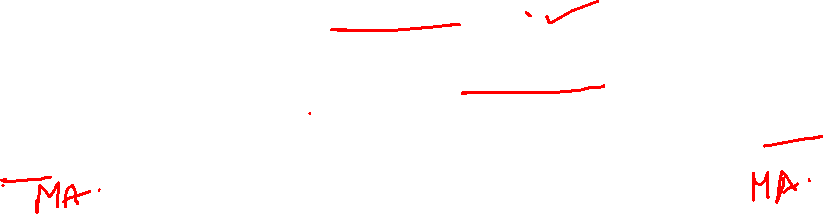 MA. MA.